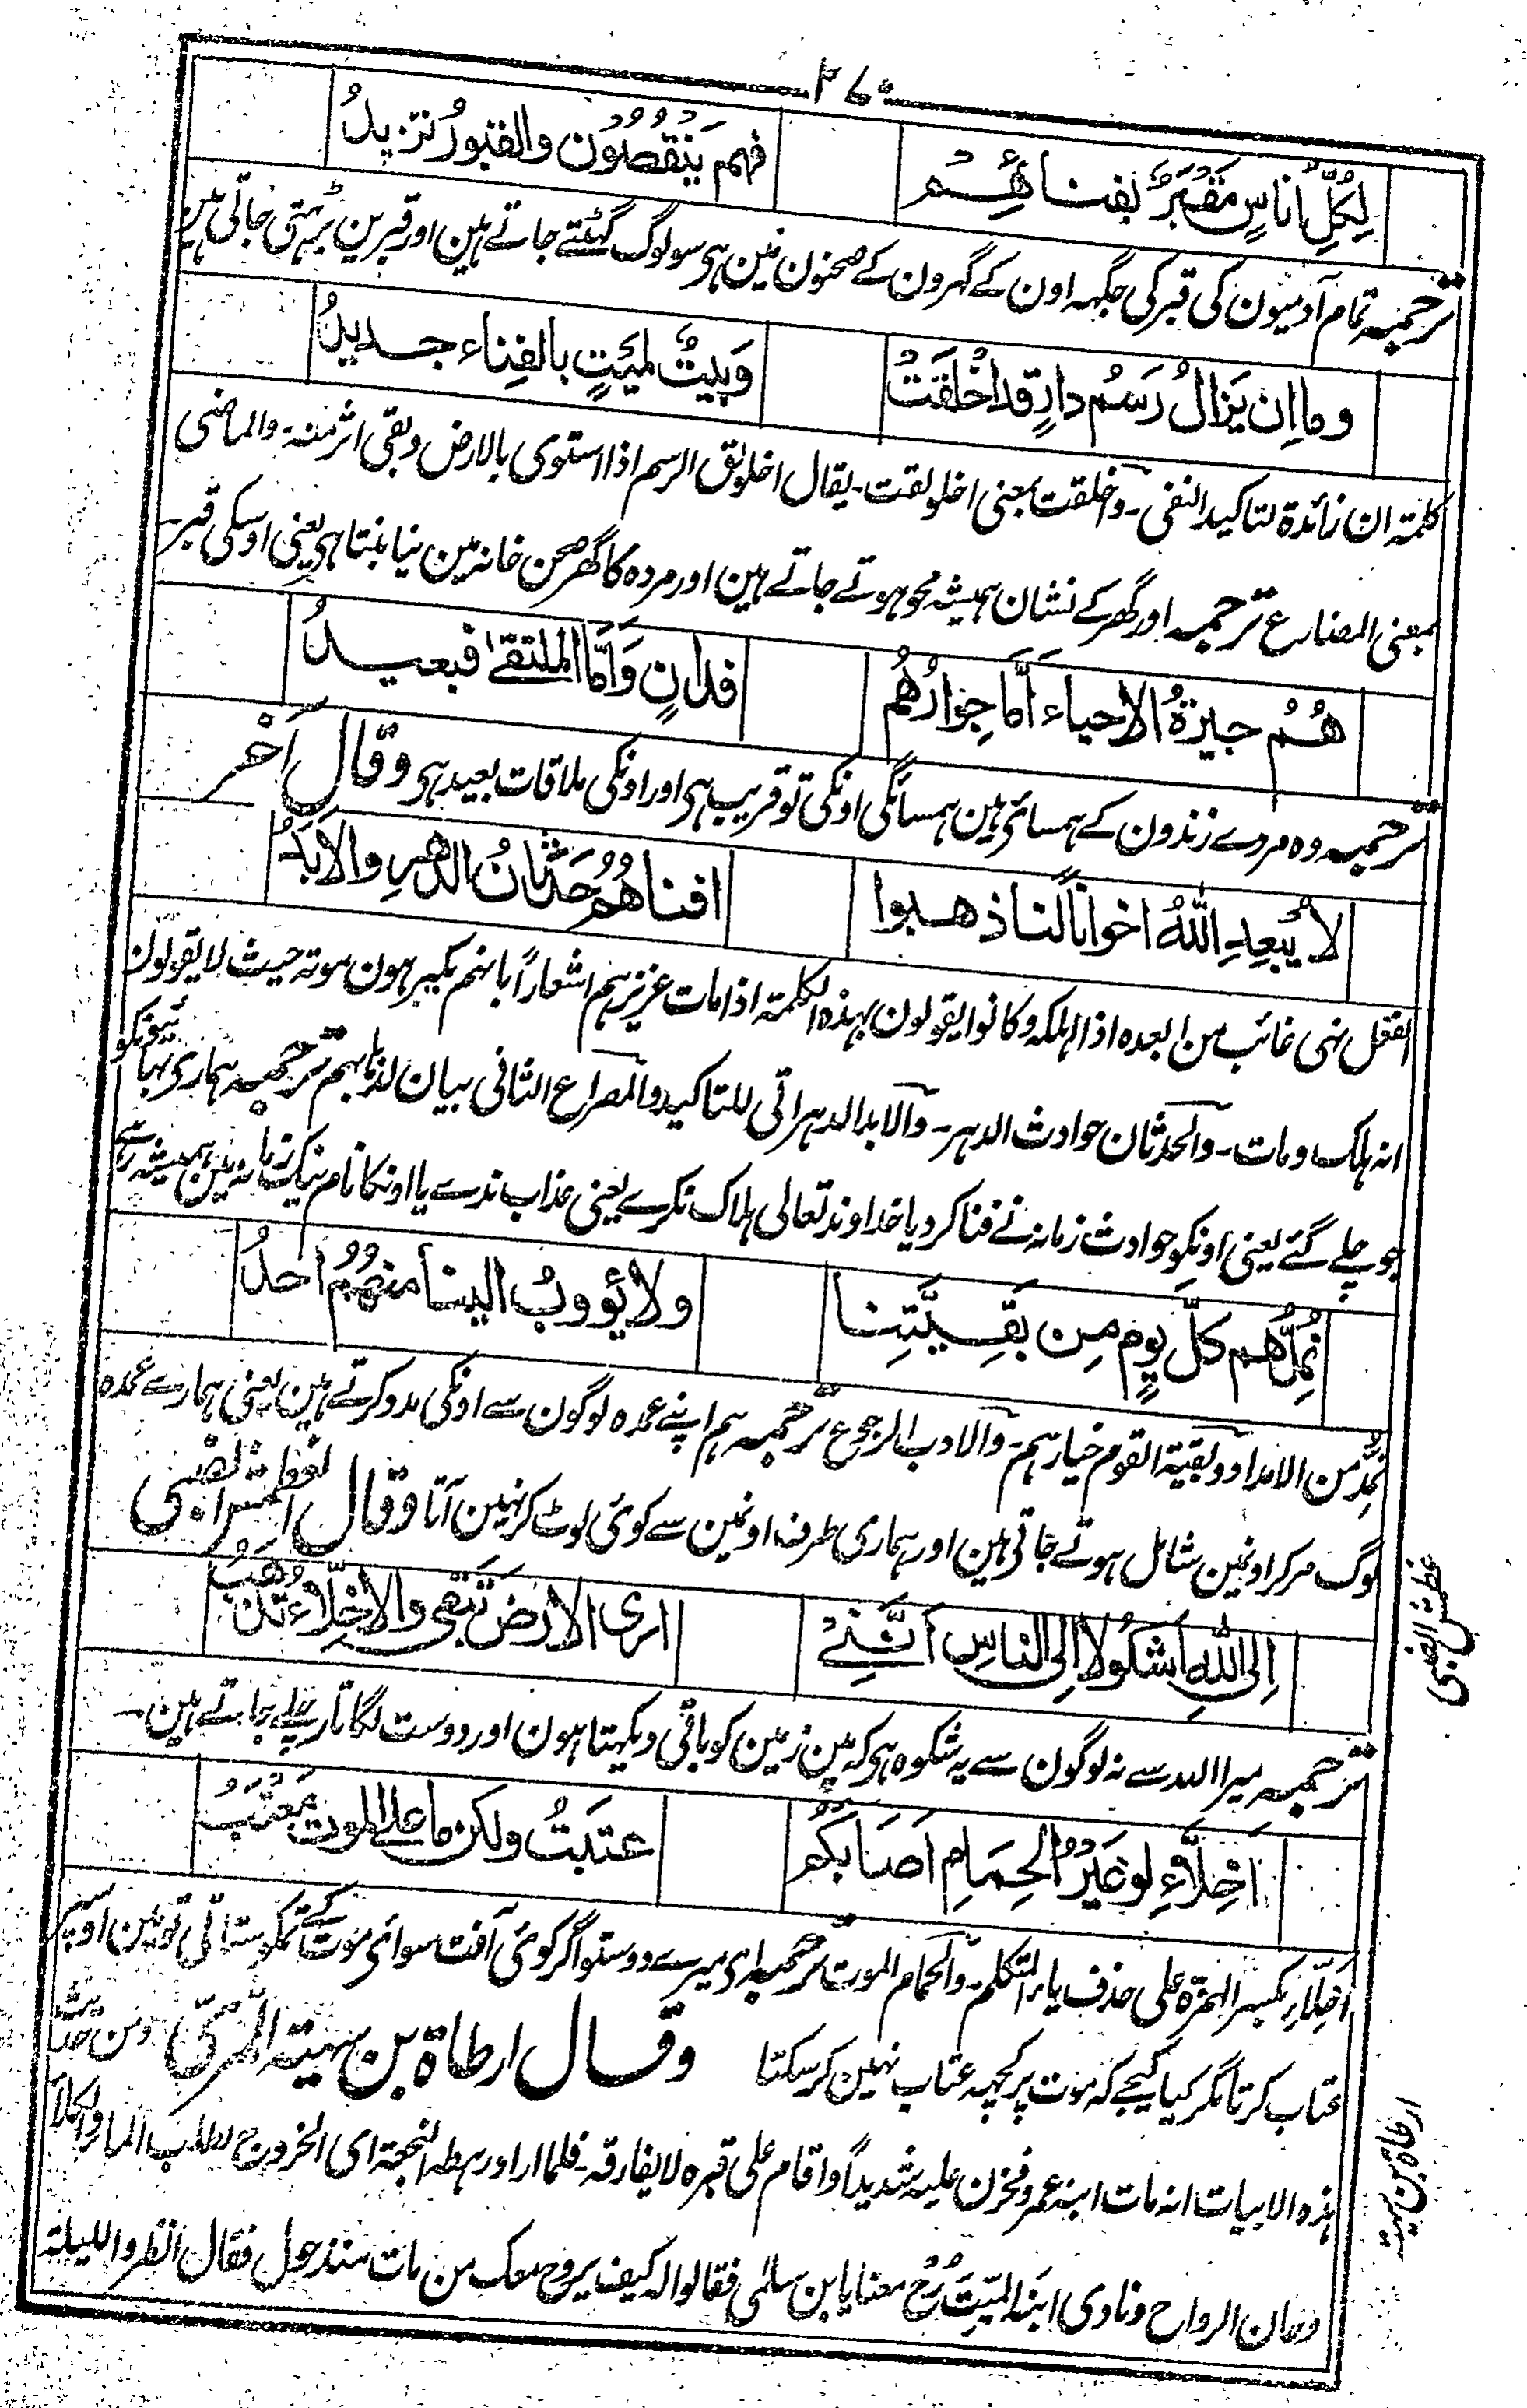 ۲۶۰
لِكُلِّ اُناسٍ مَقْبَرٌ بفنائهِم فهم يَنقُصُوْن والقبورُ تزيدُ
ترجمہ تمام آدمیون کی قبر کی جگہہ اون کے گہرون کے صحنون مین ہی سو لوگ گھٹتے جاتے ہین اور قبرین بڑہتی جاتی ہین
وما اِن يَزالُ رَسْمُ دارٍ قد اخْلَقَتْ وَبيتٌ لميّتٍ بالفِناء جديدُ
كلمتہ ان زائدة لتاكيد النفى۔ واخلقت بمعنى اخلولقت۔ يقال اخلولق الرسم اذا استوى بالارض وبقى اثر منہ۔ والماضى
بمعنى المضارع ترجمہ اور گھر کے نشان ہمیشہ محو ہوتے جاتے ہین اور مردہ کا گھر صحن خانہ مین نیا بنتا ہی یعنی اوسکی قبر۔
هُمُ جيرةُ الاحياء اَمّا جِوارُهُم فدانٍ وَاَمّا الملتقىٰ فبعيدُ
ترجمہ وہ مردے زندون کے ہمسائے ہین ہمسائگی اونکی تو قریب ہی اور اونکی ملاقات بعید ہی وقال اٰخر
لا يُبعِدِ اللهُ اخوانًا لنا ذهبوا افناهُمُ حَدَثانُ الدهرِ والابَدُ
الفعل نہى غائب من ابعده اذا اہلكہ وكانوا يقولون بہذه الكلمتہ اذا مات عزيزہم اشعاراً بانہم يكبرہون موتہ حيث لا يقولون
انہ ہلك ومات۔ والحدثان حوادث الدہر۔ والابد الدہر اتى للتاكيد والمصراع الثانى بيان لذہابہم ترجمہ ہماری بہائیونکو
جو چلے گئے یعنی اونکو حوادث زمانہ نے فنا کر دیا خداوند تعالی ہلاک نکرے یعنی عذاب ندے یا اونکا نام نیک زمانہ مین ہمیشہ رہے
نُمِدُّهم كلَّ يومٍ مِن بَقِيَّتِنا ولا يؤوبُ الينا منهُمُ احدُ
نُمِدُّ من الامداد وبقية القوم خيارہم۔ والاوب الرجوع ترجمہ ہم اپنے عمدہ لوگون سے اونکی مدد کرتے ہین یعنی ہمارے عمدہ
لوگ مرکر اونمین شامل ہوتے جاتی ہین اور ہماری طرف اونمین سے کوئی لوٹ کر نہین آتا وقال الغطمش الضبى
غطمش الضبی
اِلى اللهِ اَشكُو لا اِلى الناسِ اَنَّنِىْ ارى الارضَ تبقى والاخِلّاءُ تذهبُ
ترجمہ میرا اللہ سے نہ لوگون سے یہ شکوہ ہی کہ مین زمین کو باقی دیکہتا ہون اور دوست لگاتار چلے جاتے ہین۔
اَخِلّاءِ لو غَيْرُ الحِمَامِ اَصَابَكُم عتَبتُ ولكن ما على الموت مَعْتَبُ
اَخِلّاءِ بكسر الہمزة على حذف ياء المتكلم۔ والحمام الموت ترجمہ ای میرے دوستو اگر کوئی آفت سوائی موت کے تمکو ستاتی تو مین اوسپر
عتاب کرتا مگر کیا کیجے کہ موت پر کچہہ عتاب نہین کر سکتا وقال ارطاة بن سہیتہ المرّى ومن حديث
ارطاة بن سہیہ
ہذه الابيات انہ مات ابنہ عمرو فحزن عليہ شديداً واقام على قبره لا يفارقہ۔ فلما اراد رہطہ النجعة اى الخروج لطلب الماء والكلأ
وحان الرواح ونادى ابنہ الميّتَ رُحْ معنا يا ابن سلمٰى فقالوا لہ كيف يروح معك من مات منذ حول فقال انظروا الليلة